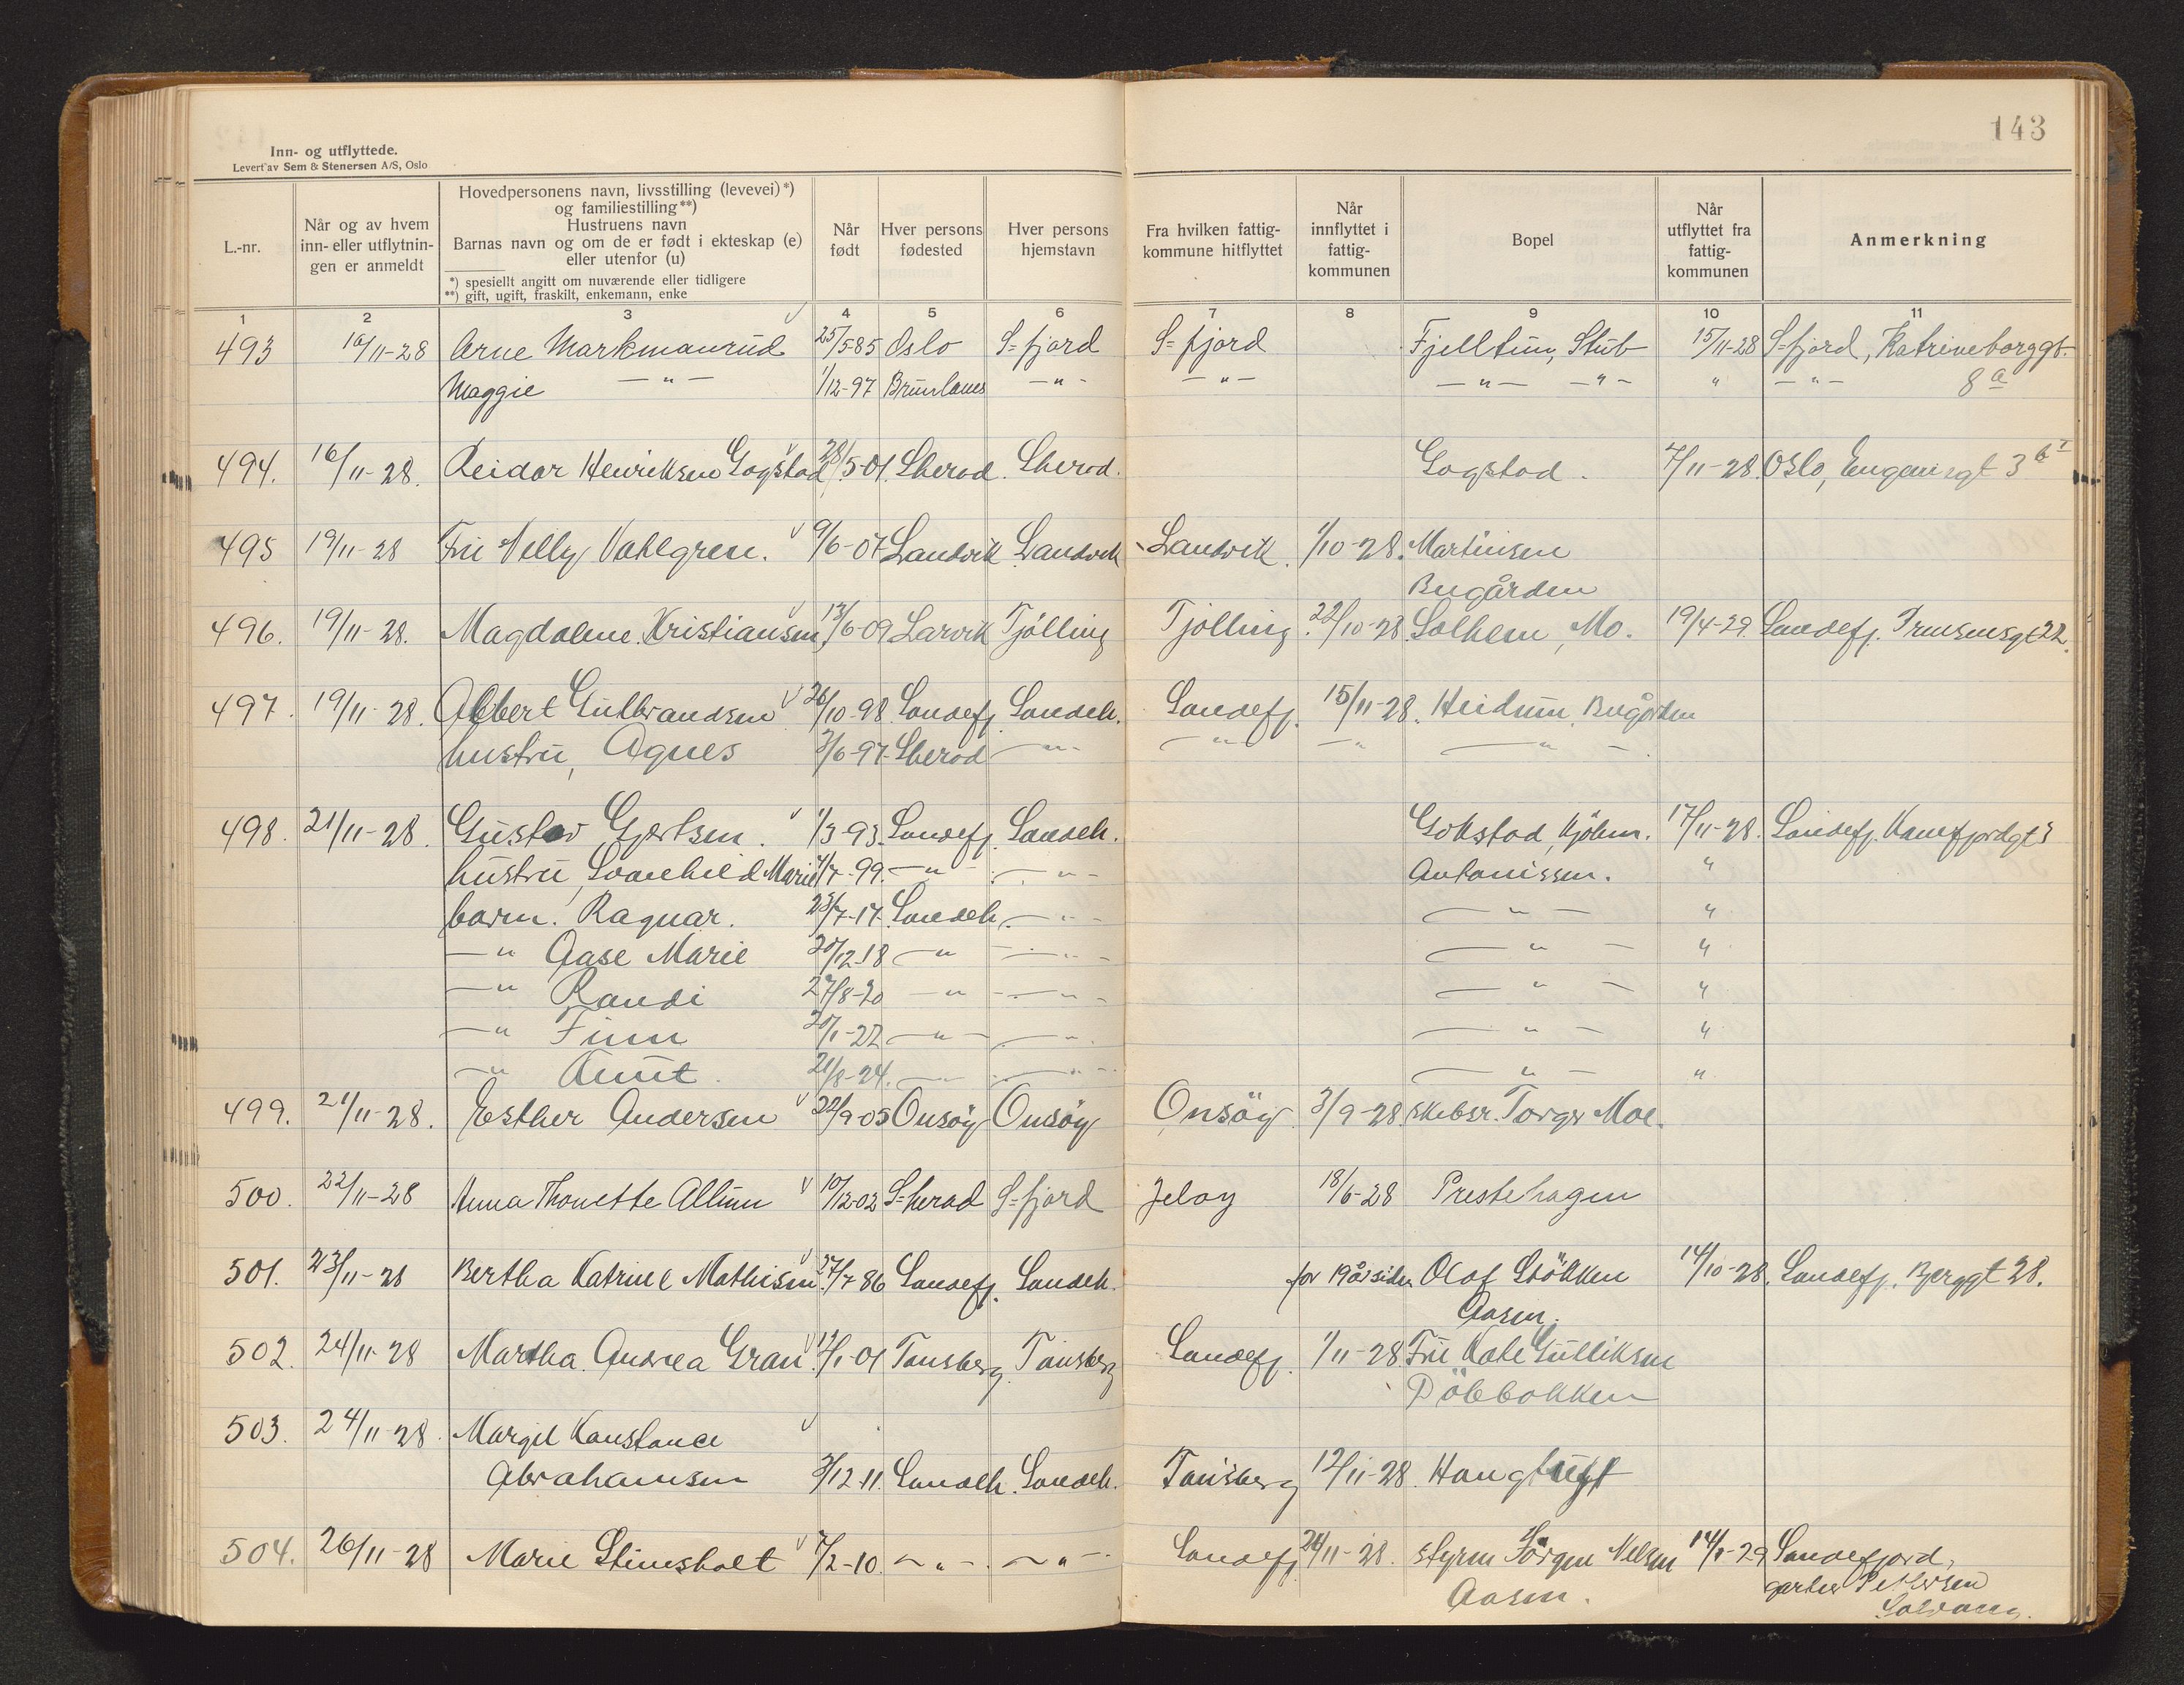 143
Inn- og utflyttede.
Levert av Sem & Stenersen A/S, Oslo
L.-nr.
Når og av hvem inn- eller utflytnin- gen er anmeldt
Hovedpersonens navn, livsstilling (levevei)*) og familiestilling**) Hustruens navn Barnas navn og om de er født i ekteskap (e) eller utenfor (u)
*) spesiellt angitt om nuværende eller tidligere
**) gift, ugift, fraskilt, enkemann, enke
Når født
Hver persons fødested
Hver persons hjemstavn
Fra hvilken fattig- kommune hitflyttet
Når innflyttet i fattig- kommunen
Bopel
Når utflyttet fra fattig- kommunen
Anmerkning
1 2 3 4 5 6 7 8 9 10 11
493 16/11-28 Arne Markmanrud 25/5-85 Oslo S=fjord S=fjord Fjelltun, Stub 15/11-28 S=fjord, Katrineborggt.
Maggie —"— 1/12-97 Brunlanes —"— —"— —"— —"— " —"— 8a
494. 16/11-28. Reidar Henriksen Gogstad 28/5-01. Sherad. Sherad. Gogstad. 7/11-28. Oslo, 3
495 19/11-28 Fru Nelly Vahlgren. 9/6-07 Landvik Landvik Landvik 1/10-28. Martinsen
Bugården
496. 19/11-28. Magdalene Kristiansen 13/6-09 Larvik Tjølling Tjølling. 22/10-28 Solhem, Mo. 19/4-29. Sandefj. 22.
497. 19/11-28. Albert Gulbrandsen 26/10-98 Sandefj. Sandeh. Sandefj. 15/11-28. Heidum, Bugården
hustru, Agnes 3/6-97. Sherad —"— —"— —"— —"—
498. 21/11-28. Gustav Gjertsen. 1/3-93. Sandefj. Sandeh. Gokstad, kjøbm. 17/11-28. Sandefj.
hustru, Svanhild Marie /7-99. —"— —"— Antonissen. "
barn. Ragnar. 23/7-17. Sandeh. —"— —"— "
—" Aase Marie 20/12-18 —" —"— —"— "
—" Randi 27/8-20 —" —"— —"— "
—" Finn 20/1-22 —"— —"— —"— "
—" Knut. 21/8-24. —"— —"— —"— "
499. 21/11-28. Esther Andersen 22/9-05 Onsøy Onsøy Onsøy 3/9-28. skibsr. Torger Moe.
500. 22/11-28 Anna Thonette Allum 10/12-02 S=herad S=fjord Jeloy 18/6-28 Prestehagen
501. 23/11-28 Bertha Katrine Mathisen. 27/7 86 Sandefj. Sandeh. for 19 år siden Olaf Støkken 14/10-28. Sandefj. Bjerggt 28.
Aasen.
502. 24/11-28 Martha Andrea Gran. /1-01 Tønsberg. Tønsberg Sandefj. 1/11-28. Fru Kate Gulliksen
Døbbakken
503. 24/11-28. Margit Konstance
Abrahamsen 3/12-11. Sandeh. Sandeh. Tønsberg 12/11-28. Haugtuft
504. 26/11-28 Marie Stinesholt 7/2-10. —"— —"— Sandefj. 24/11-28. styrm Jørgen Nelsen 14/1-29 Sandefjord,
Aasen. gartner Pettersen